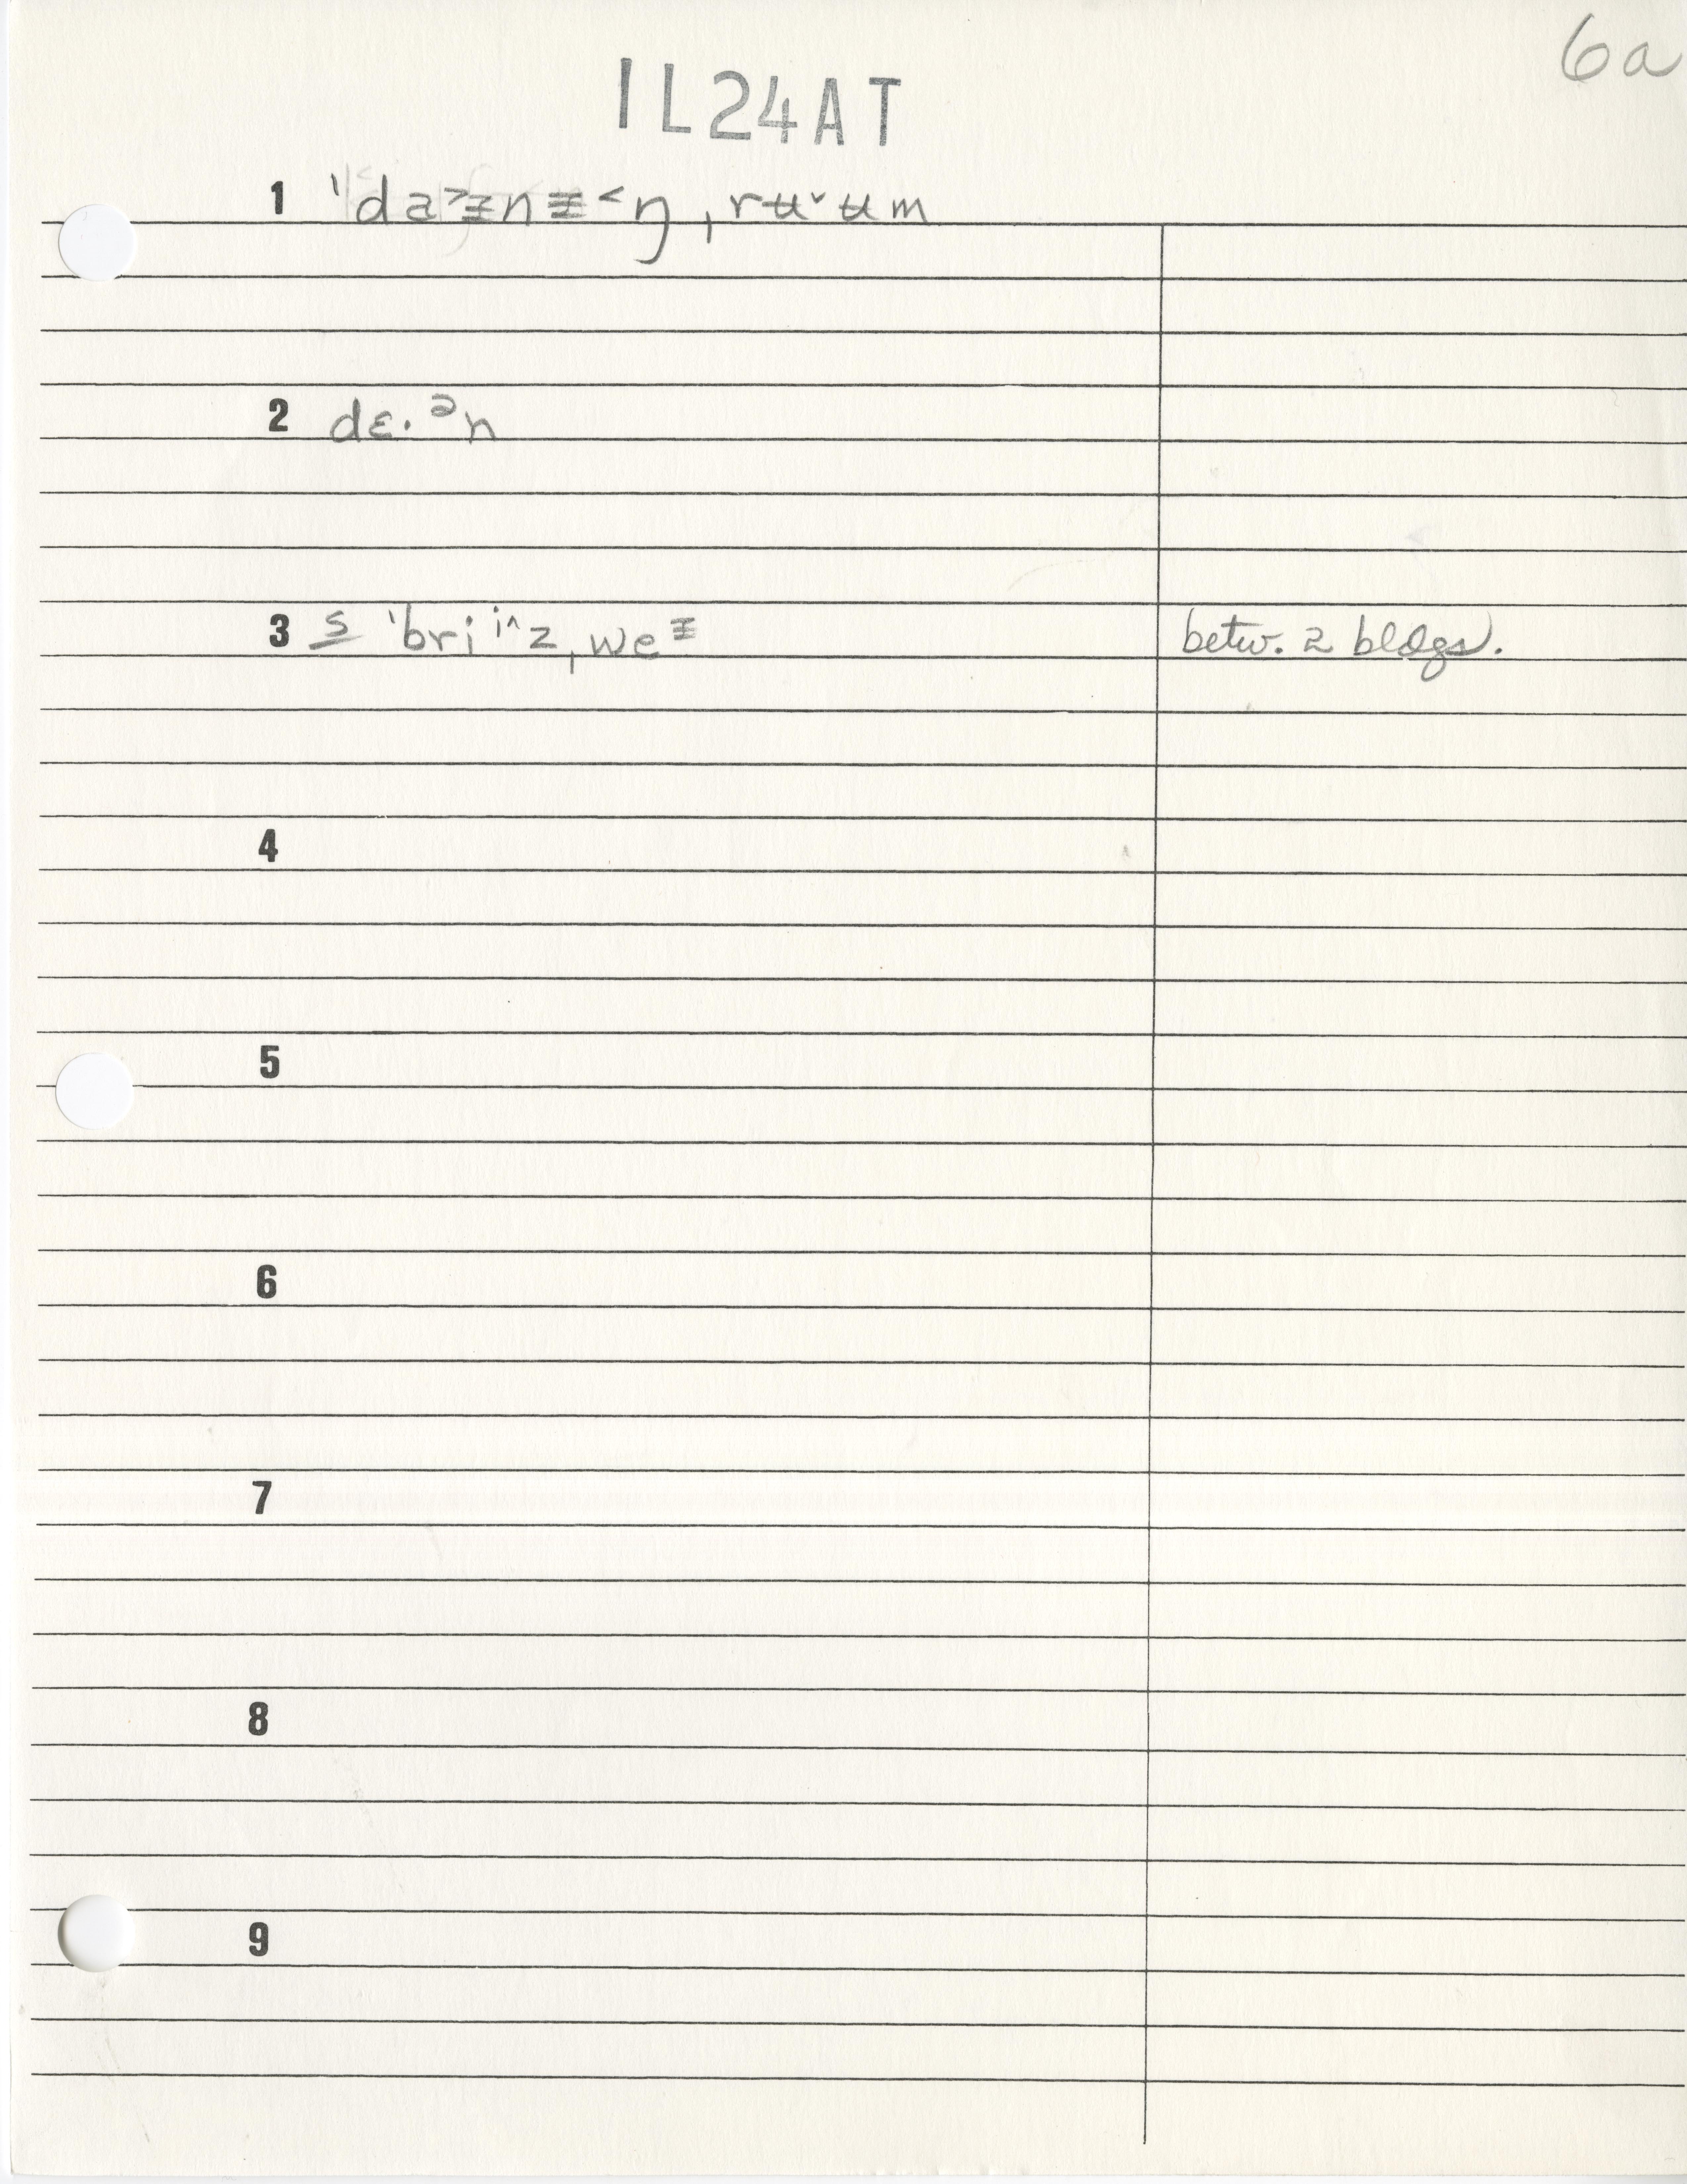 6a
IL24AT
1 ˈda˃ᵻnᵻ˂ŋˌrʉˇʉm
2 dɛ·ᵊn
3 s ˈbriⁱ^zˌweᵻ betw. 2 bldgs.
4
5
6
7
8
9